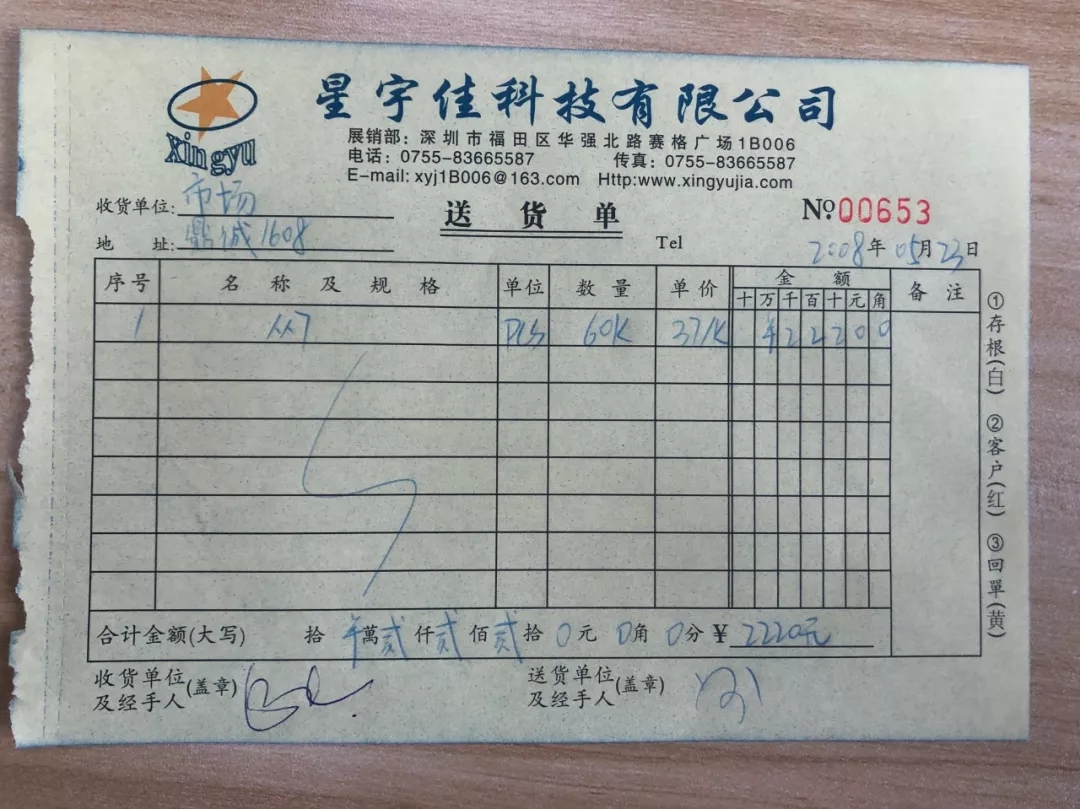 星宇佳科技有限公司
xingyu
展销部：深圳市福田区华强北路赛格广场1B006
电话：0755-83665587 传真：0755-83665587
E-mail: xyj1B006@163.com Http:www.xingyujia.com
收货单位: 市场 送货单 №:00653
地址: 鼎诚1608 Tel 2008年05月23日
序号 名称及规格 单位 数量 单价 金额 备注
十 万 千 百 十 元 角
1 PCS 60K 37/K ¥ 2 2 2 0 0
合计金额(大写) 拾 ¥萬贰仟贰佰贰拾0元0角0分¥ 2220元
收货单位及经手人(盖章) 送货单位及经手人(盖章)
①存根(白) ②客户(红) ③回單(黄)